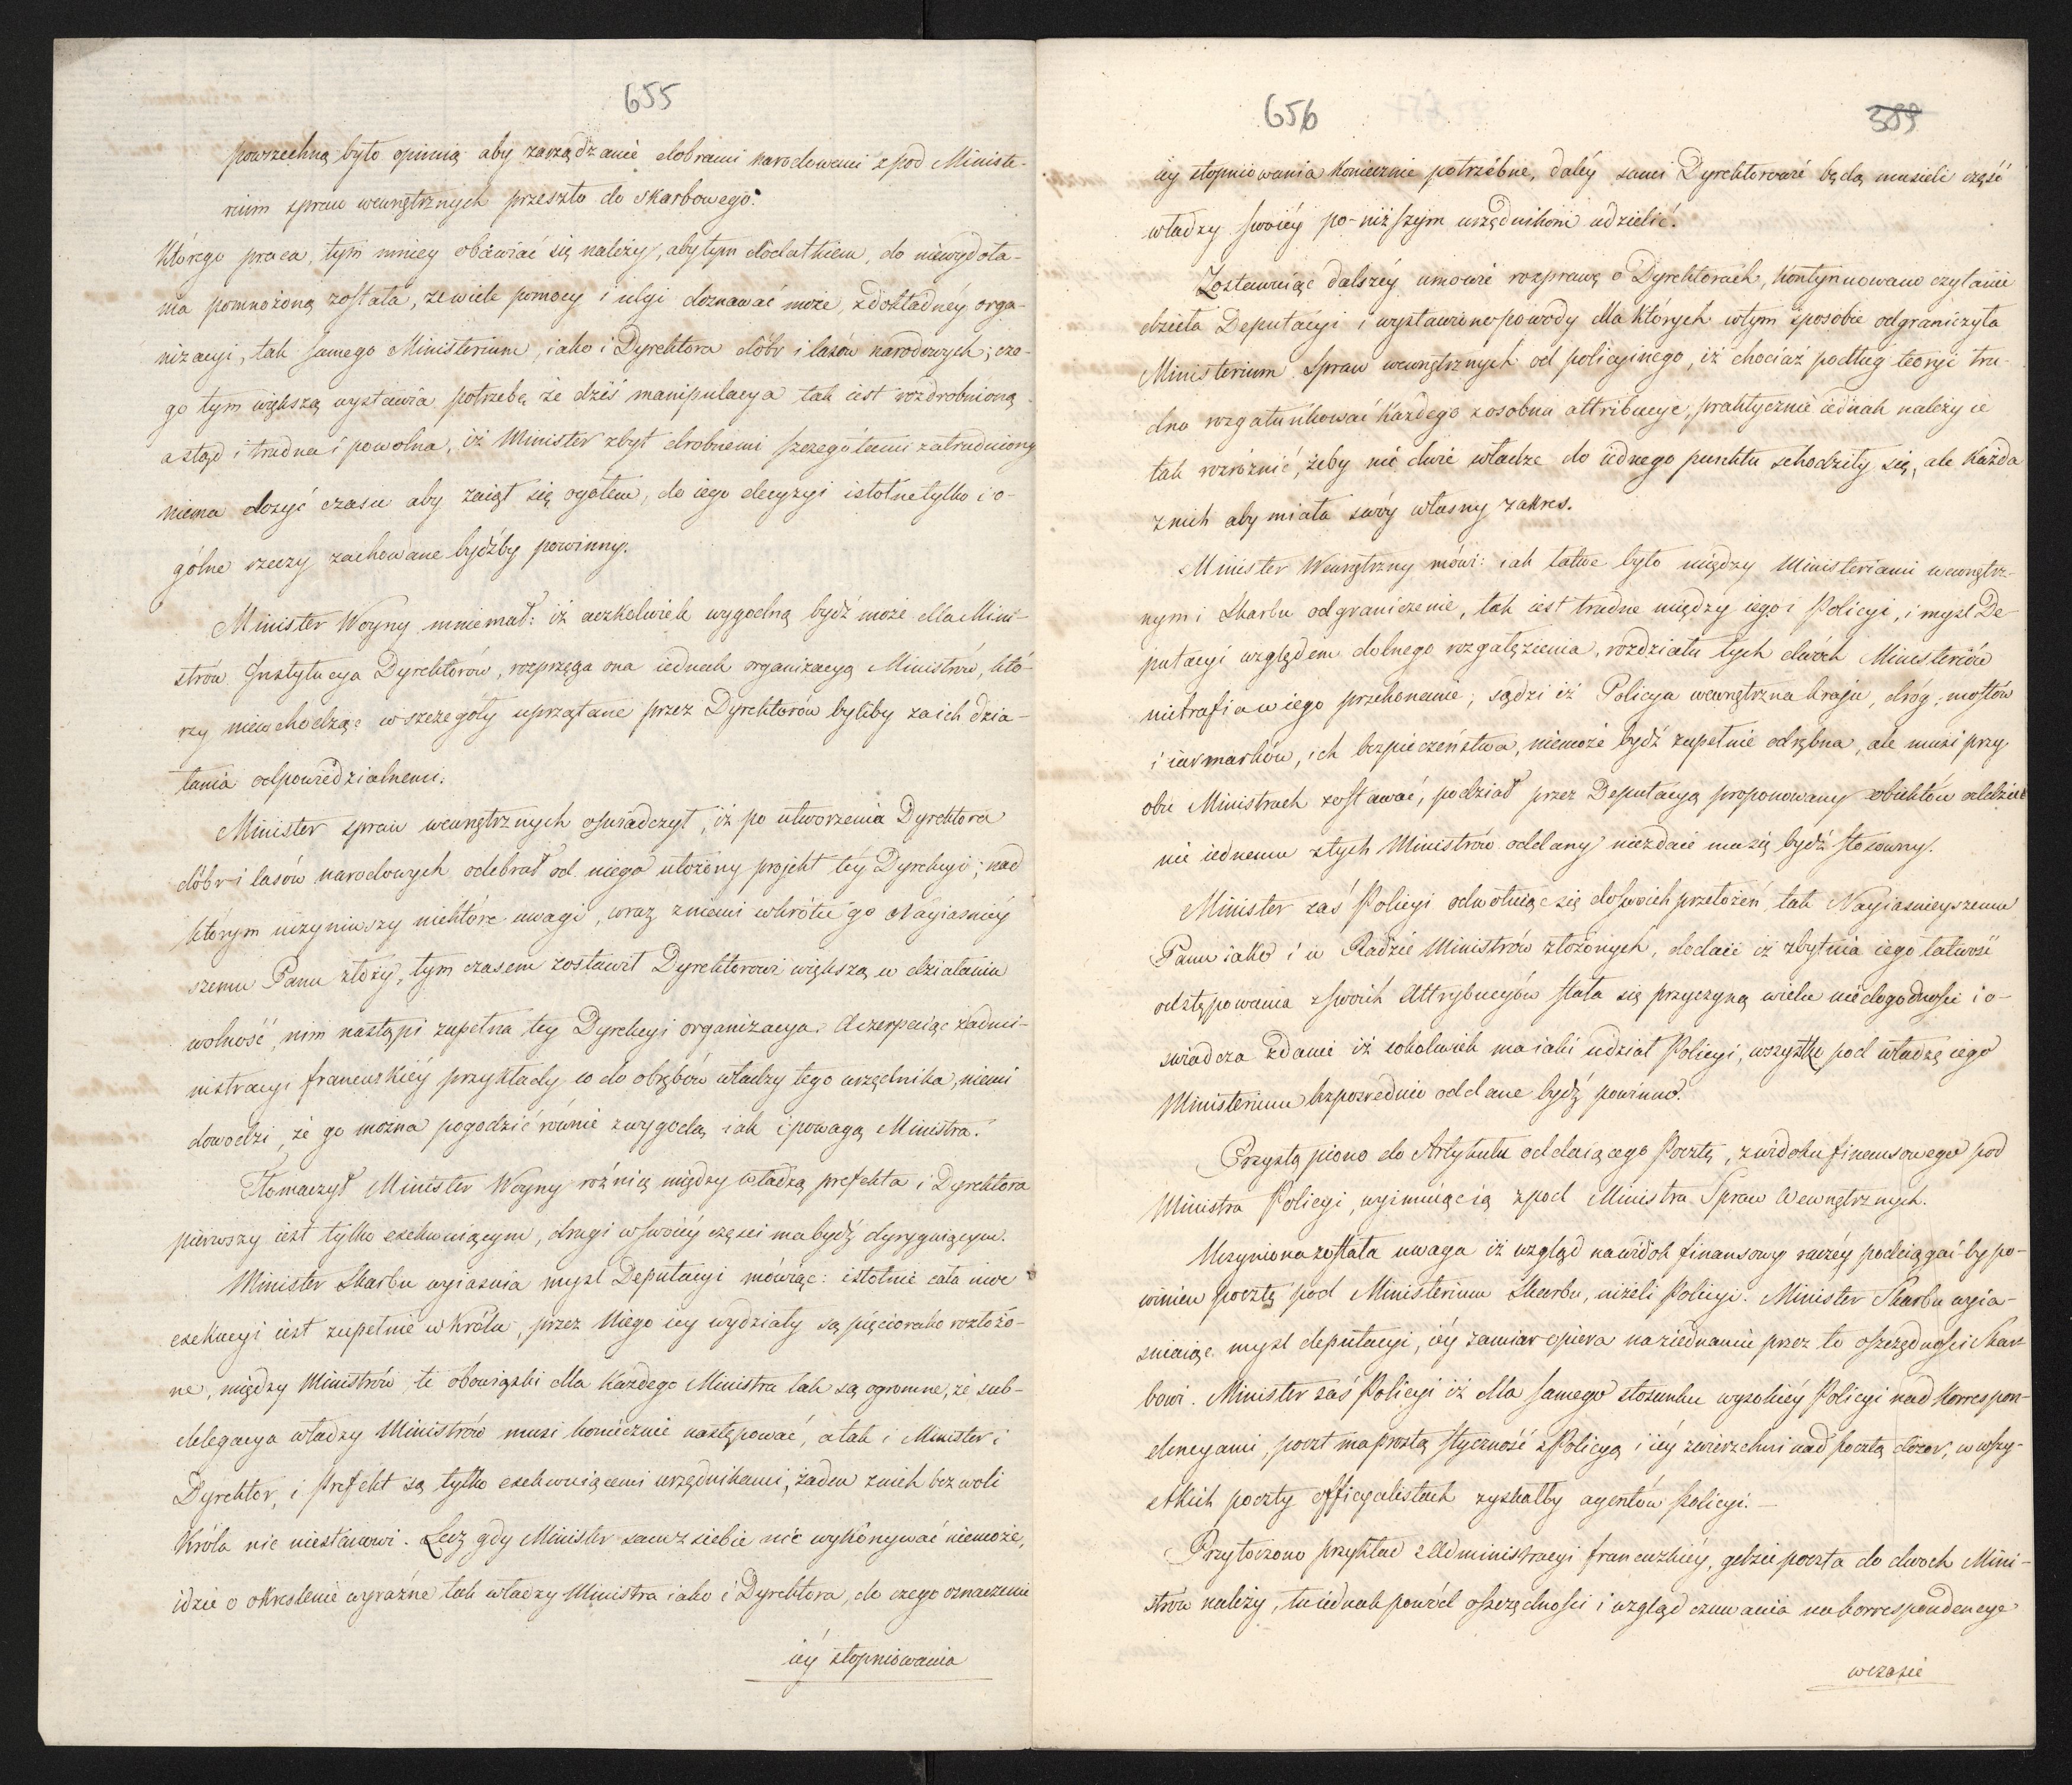 655
powszechną było opinią aby zarządzanie dobrami narodowemi z pod Ministe-
rium spraw wewnętrznych przeszło do skarbowego.
Którego praca, tym mniey obawiać się należy, aby tym dodatkiem, do niewydoła-
nia pomnożoną została, ze wiele pomocy i ulgi doznawać może, z dokładnéy orga-
nizacyi, tak samego Ministerium, iako i Dyrektora dóbr i lasów narodowych; cze-
go tym większą wystawia potrzebę że dziś manipulacya tak iest rozdrobnioną
a stąd i trudna i powolna, iż Minister zbyt drobnemi szczegółami zatrudniony
niema dosyć czasu aby zaiąt się ogółem, do iego decyzyi istotne tylko i o-
gólne rzeczy zachowane bydźby powinny.
Minister Woyny mniemał: iż aczkolwiek wygodną bydź może dla Mini-
strów Instytucya Dyrektorów, rozprzęga ona iednak organizacyą Ministrów, któ-
rzy niewchodząc w szczegóły uprzątane przez Dyrektorów byliby za ich dzia-
łania odpowiedzialnemi.
Minister spraw wewnętrznych oświadczył, iż po utworzeniu Dyrektora
dóbr i lasów narodowych odebrał od niego ułożony projekt téy Dyrekcyi; nad
którym uczyniwszy niektóre uwagi, wraz z niemi wkrótce go Nayiasniéy
szemu Panu złoży, tym czasem zostawił Dyrektorowi większą w działaniu
wolność, nim nastąpi zupełna téy Dyrekcyi organizacya. A czerpaiąc z admi-
nistracyi francuskiéy przykłady co do obrębów władzy tego urzędnika, niemi
dowodzi, że go można pogodzić równie z wygodą iak i powagą Ministra.
Tłomaczył Minister Woyny różnicę między władzą prefekta i Dyrektora
pierwszy iest tylko exekwuiącym, drugi w swoiéy części ma bydź dyryguiącym.
Minister Skarbu wyiasnia mysl Deputacyi mówiąc: istotnie cała moc
exekucyi iest zupełnie w Królu, przez Niego iey wydziały są pięciorako rozłożo-
ne, między Ministrów, te obowiązki dla każdego Ministra tak są ogromne, że sub-
delegacya władzy Ministrów musi koniecznie następować, a tak i Minister i
Dyrektor, i Prefekt są tylko exekwuiącemi urzędnikami, żaden z nich bez woli
Króla nic niestanowi. Lecz gdy Minister sam z siebie nic wykonywać niemoże,
idzie o okreslenie wyraźne tak władzy Ministra iako i Dyrektora, do czego oznaczenie
iéy stopniowania
656
389
iéy stopniowania koniecznie potrzebne, daléy sami Dyrektorowie będą musieli część
władzy swoiéy po-niższym urzędnikom udzielić.
Zostawuiąc dalszéy umowie rozprawę o Dyrektorach, kontynuowano czytanie
dzieła Deputacyi i wystawiono powody dla których w tym sposobie odgraniczyła
Ministerium Spraw wewnętrznych od policyinego, iż chociaż podług teoryi tru-
dno rozgatunkować każdego z osobna attribucyie, praktycznie iednak należy ie
tak rozróżnić, żeby nie dwie władze do iednego punktu schodziły się, ale każda
z nich aby miała swóy własny zakres.
Minister Wewnętrzny mówi: iak łatwe było między Ministeriami wewnętrz-
nym i Skarbu odgraniczenie, tak iest trudne między iego i Policyi, i mysl De-
putacyi względem dolnego rozgałęzienia, rozdziału tych dwóch Ministeriów
nietrafia w iego przekonanie, sądzi iż Policya wewnętrzna kraju, dróg, mostów
i iarmarków, ich bezpieczeństwa, niemoże bydź zupełnie odrębna, ale musi przy
obu Ministrach zostawać, podział przez Deputacyą proponowany obiektów oddziel
nie iednemu z tych Ministrów oddany niezdaie mu się bydź stosowny.
Minister zaś Policyi odwołuiąc się do swoich przełożeń tak Nayiasnieyszemu
Panu iako i w Radzie Ministrów złożonych, dodaie iż zbytnia iego łatwość
odstępowania z swoich Attrybucyów stała się przyczyną wielu niedogodności i o-
swiadcza zdanie iż cokolwiek ma iaki udział Policyi, wszystko pod władzę iego
Ministerium bezpośrednio oddane bydź powinno.
Przystąpiono do Artykułu oddaiącego Pocztę, z widoku finansowego pod
Ministra Policyi, wyimuiąc ią z pod Ministra Spraw Wewnętrznych.
Uczyniona została uwaga iż wzgląd na widok finansowy raczéy podciągać-by po-
winien pocztę pod Ministerium Skarbu, niżeli Policyi. Minister Skarbu wyia-
sniaiąc mysl deputacyi, iéy zamiar opiera na ziednaniu przez to oszczędności Skar-
bowi. Minister zaś Policyi iż dla samego stosunku wysokiéy Policyi nad korrespon-
dencyami, poczt ma prostą styczność z Policyą i iéy zwierzchni nad pocztą dozor, w wszy-
stkich poczty officyalistach zyskałby agentów Policyi. —
Przytoczono przykład z Administracyi francuzkiéy, gdzie poczta do dwoch Mini-
strów należy, tu iednak powód oszczędności i wzgląd czuwania na korrespondencye
w czasie